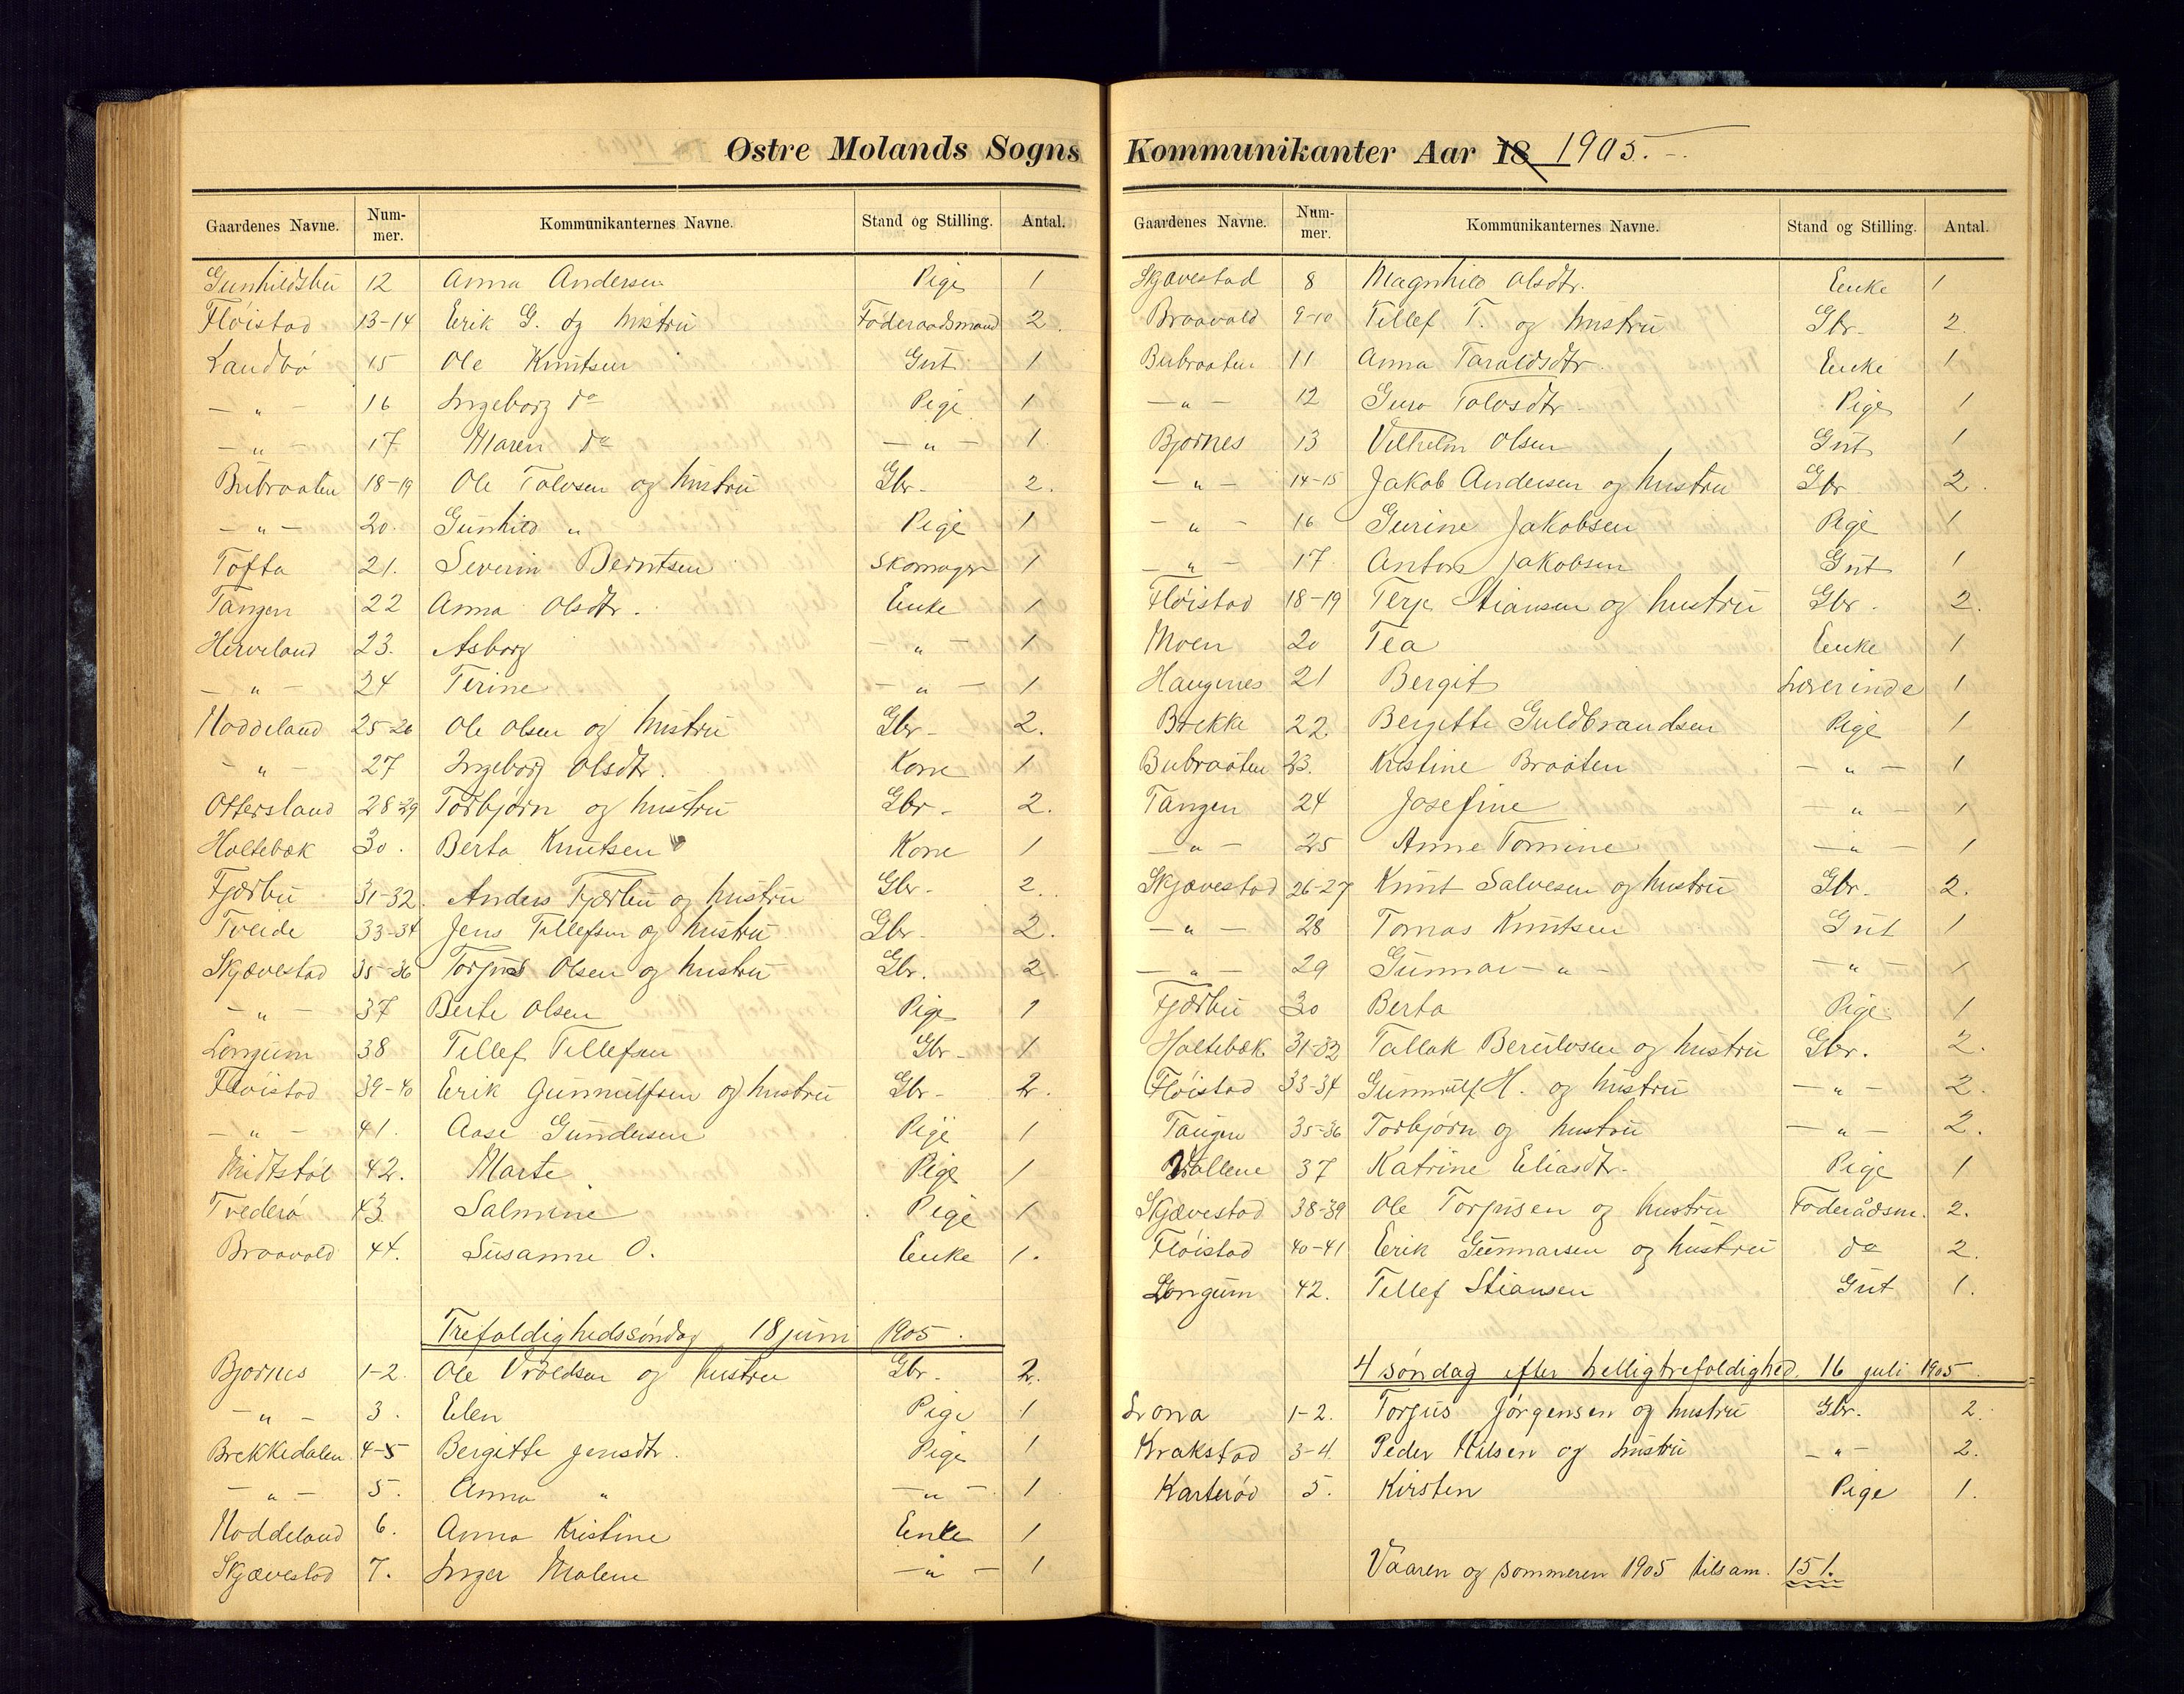 Østre Molands Sogns
Gaardenes Navne. Num-mer. Kommunikanternes Navne. Stand og Stilling. Antal.
Gunhildsbu 12 Anna Andersen Pige 1
Fløistad 13-14 Erik G. og hustru Føderaadsmand 2.
Landbø 15 Ole Knutsen Gut 1
— " — 16 Ingeborg do Pige 1
— " — 17 Maren do — " — 1.
Bubraaten 18-19 Ole Talvsen og hustru Gbr. 2.
— " — 20. Gunhild " Pige 1
Tofta 21. Severin Berntsen Skomager 1
Tangen 22 Anna Olsdtr. Enke 1
Herveland 23. Asborg — " — 1
— " — 24 Terine — " — 1
Noddeland 25-26 Ole Olsen og hustru Gbr. 2.
— " — 27 Ingeborg Olsdtr. Kone 1
Ottersland 28-29 Torbjørn og hustru Gbr. 2.
Holtebæk 30. Berta Knutsen Kone 1
Fjærbu 31-32. Anders Fjærbu og hustru Gbr. 2.
Tveide 33-34 Jens Tellefsen og hustru Gbr. 2.
Skjævestad 35-36 Torjus Olsen og hustru Gbr. 2
— " — 37 Berte Olsen Pige 1
Longum 38 Tellef Tellefsen Gbr. 1
Fløistad 39-40 Erik Gunnulfsen og hustru Gbr. 2.
— " — 41. Aase Gundersen Pige 1
Midtstøl 42. Marte Pige 1
Tvederø 43 Salmine Pige 1
Braavold 44. Susanne O. Enke 1.
Trefoldighedssøndag 18 juni 1905.
Bjørnes 1-2. Ole Vroldsen og hustru Gbr. 2.
— " — 3. Elen Pige 1
Brekkedalen 4-5 Bergitte Jensdtr. Pige 1
— " — 5. Anna " — " — 1
Noddeland 6. Anna Kristine Enke 1
Skjævestad 7. Inger Malene — " — 1
Kommunikanter Aar 18 1905.
Gaardenes Navne. Num-mer. Kommunikanternes Navne. Stand og Stilling. Antal.
Skjævestad 8 Magnhild Olsdtr. Enke 1
Braavold 9-10 Tellef T. og hustru Gbr. 2.
Bubraaten 11 Anna Taraldsdtr. Enke 1
— " — 12 Guro Talvsdtr. Pige 1
Bjørnes 13 Vilhelm Olsen Gut 1
— " — 14-15 Jakob Andersen og hustru Gbr. 2.
— " — 16 Gurine Jakobsen Pige 1
— " — 17 Anton Jakobsen Gut 1
Fløistad 18-19 Terje Stiansen og hustru Gbr. 2.
Moen 20 Tea Enke 1
Haugenes 21 Bergit Lærerinde 1
Brekke 22. Bergitte Guldbrandsen Pige 1
Bubraaten 23. Kristine Braaten — " — 1
Tangen 24 Josefine — " — 1
— " — 25 Anne Tomine — " — 1
Skjævestad 26-27 Knut Salvesen og hustru Gbr. 2.
— " — 28 Tomas Knutsen Gut 1
— " — 29 Gunnar — " — — " — 1
Fjærbu 30 Berta Pige 1
Holtebæk 31-32 Tallak Berulvsen og hustru Gbr. 2.
Fløistad 33-34 Gunnulf H. og hustru — " — 2.
Tangen 35-36 Torbjørn og hustru — " — 2.
Vallene 37 Katrine Eliasdtr. Pige 1
Skjævestad 38-39 Ole Torjusen og hustru Føderådsm. 2.
Fløistad 40-41 Erik Gunnarsen og hustru do 2.
Longum 42. Tellef Stiansen Gut 1.
4 søndag efter helligtrefoldighed. 16 juli 1905.
Lona 1-2. Torjus Jørgensen og hustru Gbr. 2.
Krakstad 3-4. Peder Nilsen og hustru — " — 2.
Karterød 5. Kirsten Pige 1.
Vaaren og sommeren 1905 tilsam. 151.